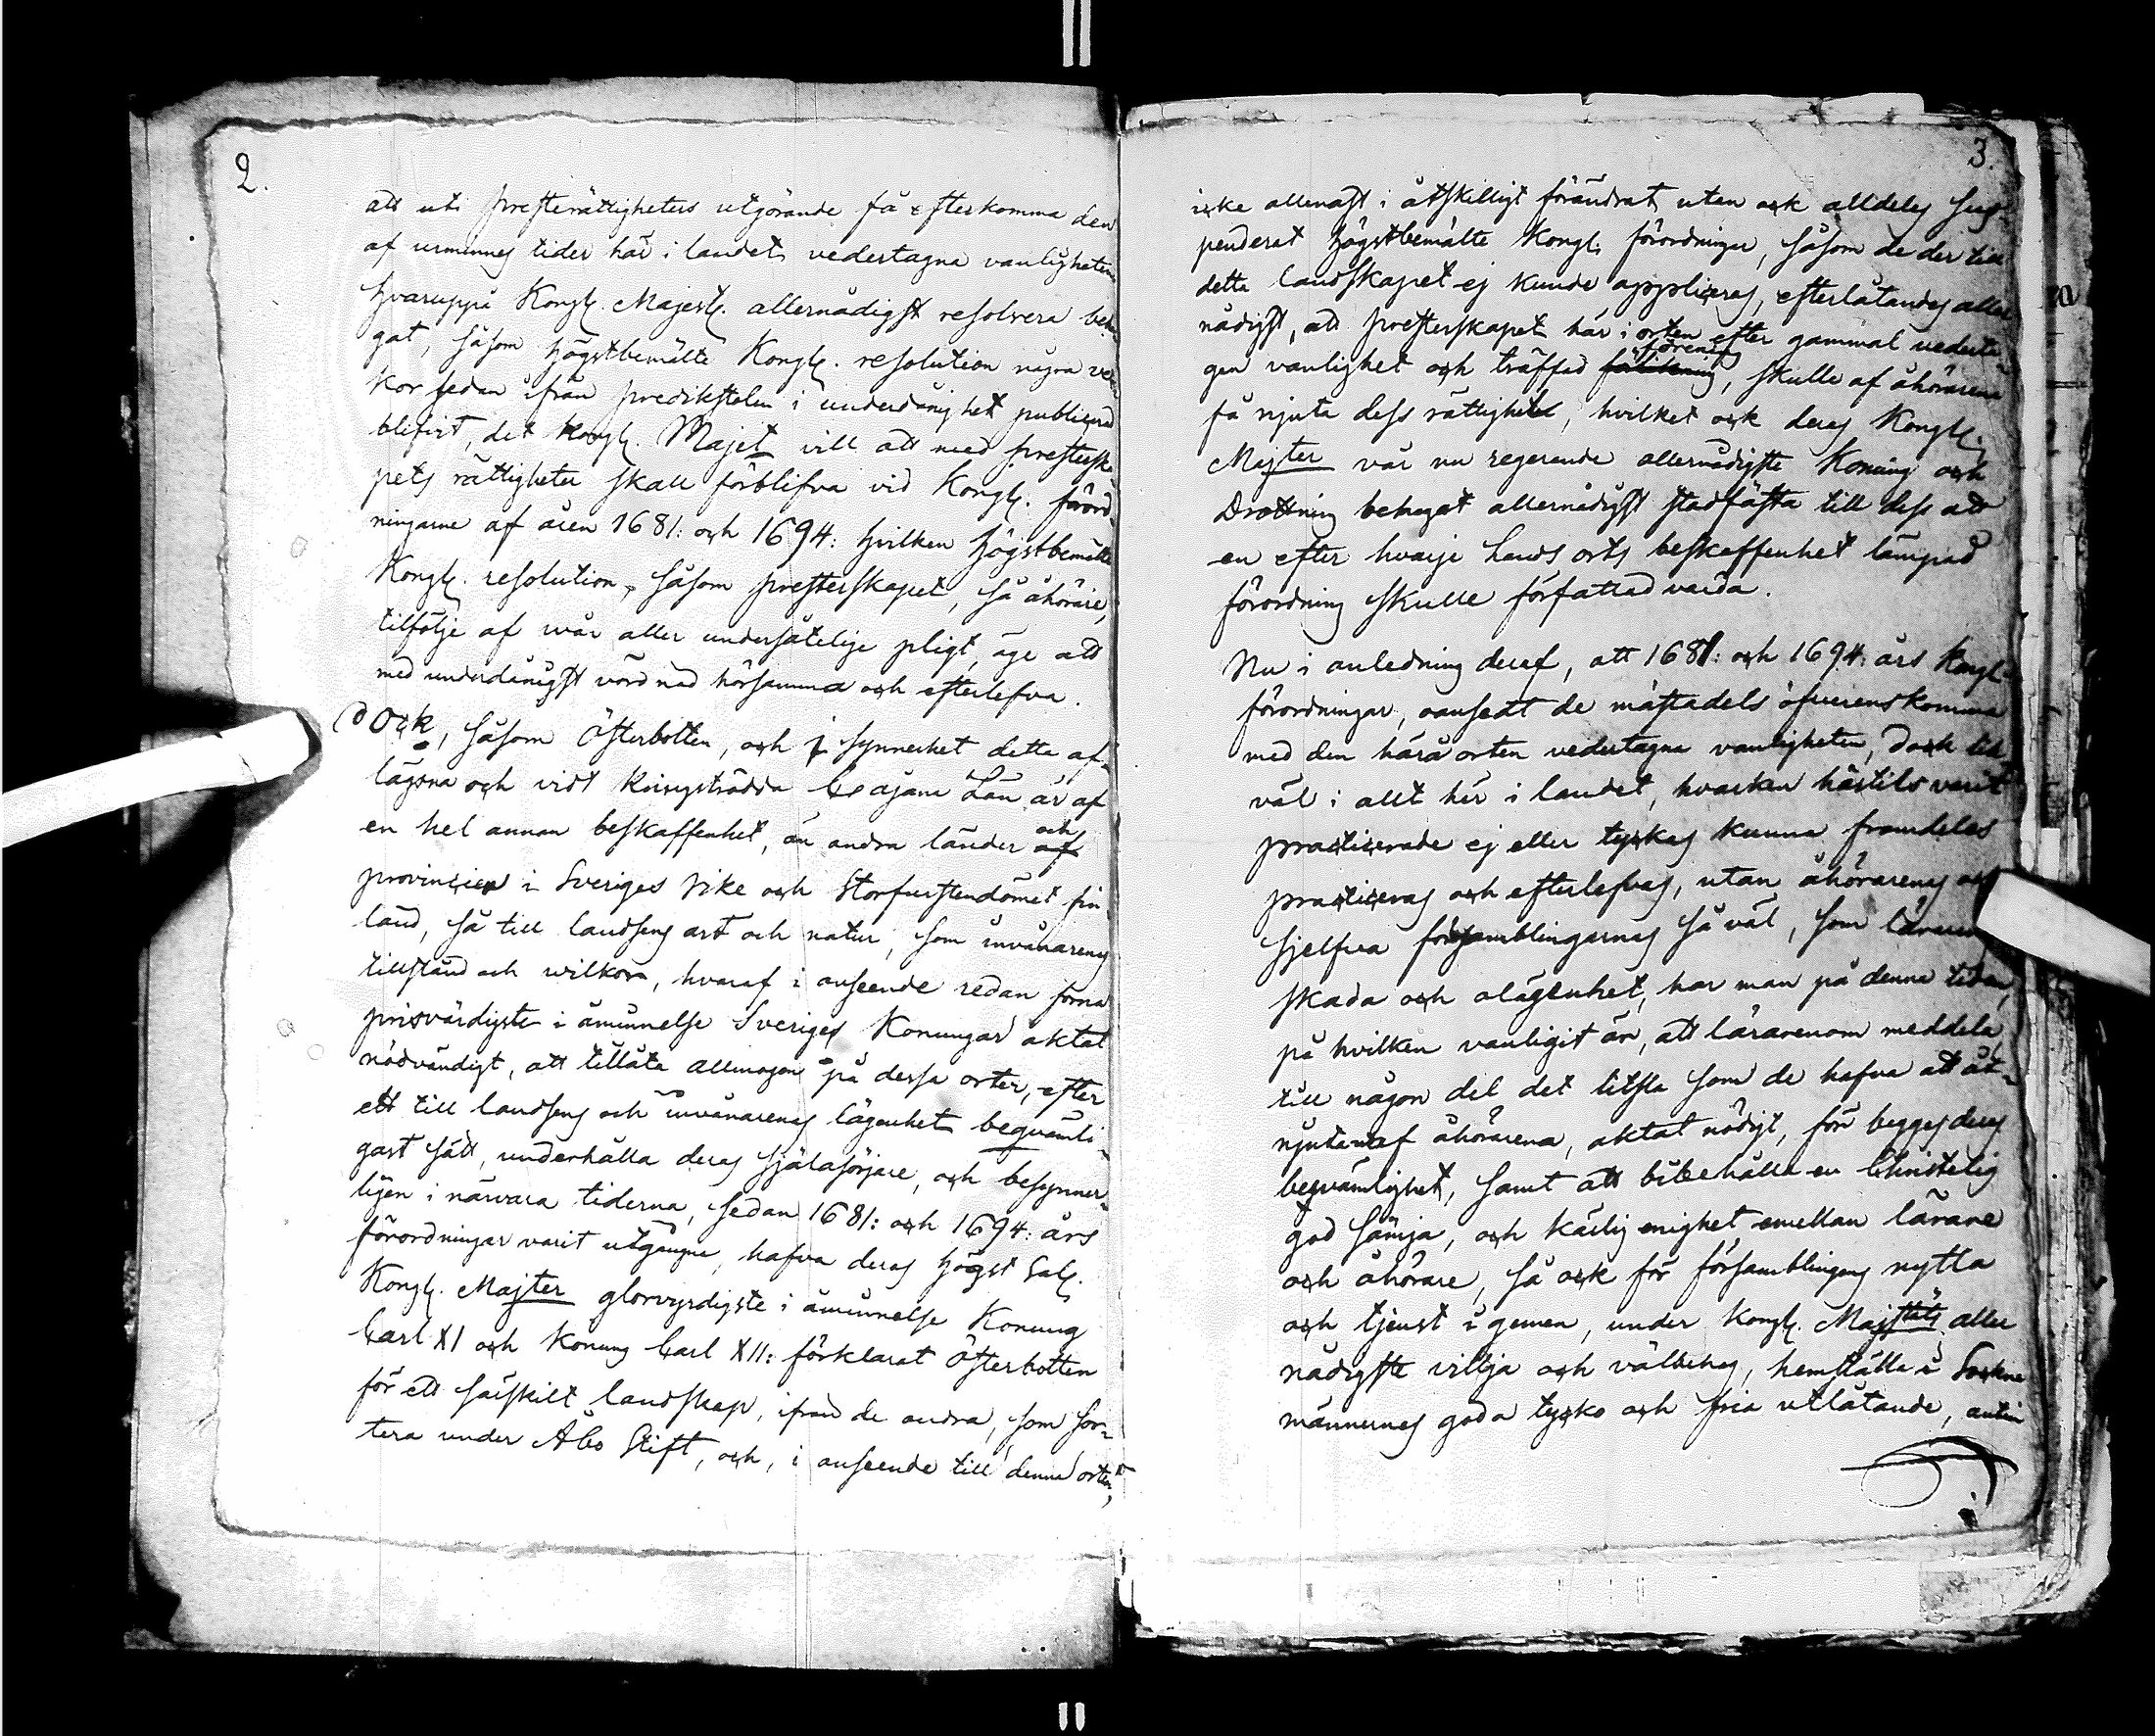 2.
att uti presterättigheters utgörande få efterkomma den
af urminnes tider här i landet vedertagna vanligheten
hvaruppå Kongl. Majest. allernådigst resolvera beha
gat, såsom högstbemälte Kongl. resolution några vec
kor sedan ifrån predikstolen i underdånighet publicerad
blifvit, det Kongl. Majet vill att med prestersk
pets rättigheter skall förblifva vid Kongl. förord
ningarne af åren 1681: och 1694: hvilken högstbemälte
Kongl. resolution, såsom presterskapet, så åhörare,
tilfölje af wår aller undersåtelige pligt, äge att
med underdånigst vördnad hörsamma och efterlefva.
dock, såsom Österbotten, och i synnerhet detta af-
lägsna och vidt kringströdda Cajana Län är af
en hel annan beskaffenhet, än andra länder af och
provincier i Sveriges rike och Storfurstendömet fin-
land, så till landsens art och natur, som invånarens
tillstånd och wilkor, hvaraf i anseende redan forna
prisvärdigste i åminnelse Sveriges Konungar aktat
nödvändigt, att tillåta allmogen på dessa orter, efter
ett till landsens och invånarenas lägenhet beqvämli-
gast sätt, underhålla deras själasörjare, och besynner-
ligen i närvara tiderna, sedan 1681: och 1694: års
förordningar varit utgångne, hafva deras högst Sal.
Kongl. Majter glorvyrdigste i åminnelse Konung
Carl XI och Konung Carl XII: förklarat Österbotten
för ett särskilt landskap, ifrån de andra, som sor-
tera under Åbo Stift, och, i anseende till denna orten,
3.
icke allenast i åtskilligt förändrat, uten ock alldeles sus-
penderat högstbemälte Kongl. förordningar, såsom de der till
detta landskapet ej kunde appliceras, efterlåtandes aller
nådigst, att presterskapet här i orten efter gammal vederta-
gen vanlighet och träffad förlikning förening, skulle af åhörarena
få njuta dess rättigheter, hvilket ock deras Kongl.
Majter vår nu regerande allernådigste Konung och
Drottning behagat allernådigst stadfästa till dess att
en efter hvarje Lands orts beskaffenhet lämpad
förordning skulle författad varda.
Nu i anledning deraf, att 1681: och 1694: års Kongl.
förordningar, oansedt de mästadels öfverenskomma
med den härå orten vedertagna vanligheten, dock lik
väl i allt här i landet, hvarken härtils varit
practicerade ej eller tyckes kunna framdeles
practiceras och efterlefvas, utan åhörarenas och
sjelfva församblingarnas så väl, som lärarens
skada och olägenhet, har man på denna tiden,
på hvilken vanligit är, att lärarenom meddela
till någon del det litsla som de hafva att åt-
njuta af åhörarena, aktat nödigt, för begges deras
beqvämlighet, samt att bibehålla en Christelig
god sämja, och kärlig enighet emellan lärare
och åhörare, så ock för församblingens nytta
och tjenst i gemen, under Kongl. Majstäts aller
nådigste vilja och välbehag, hemställa i Sockne
männernas goda tycko och fria utlåtande, antin